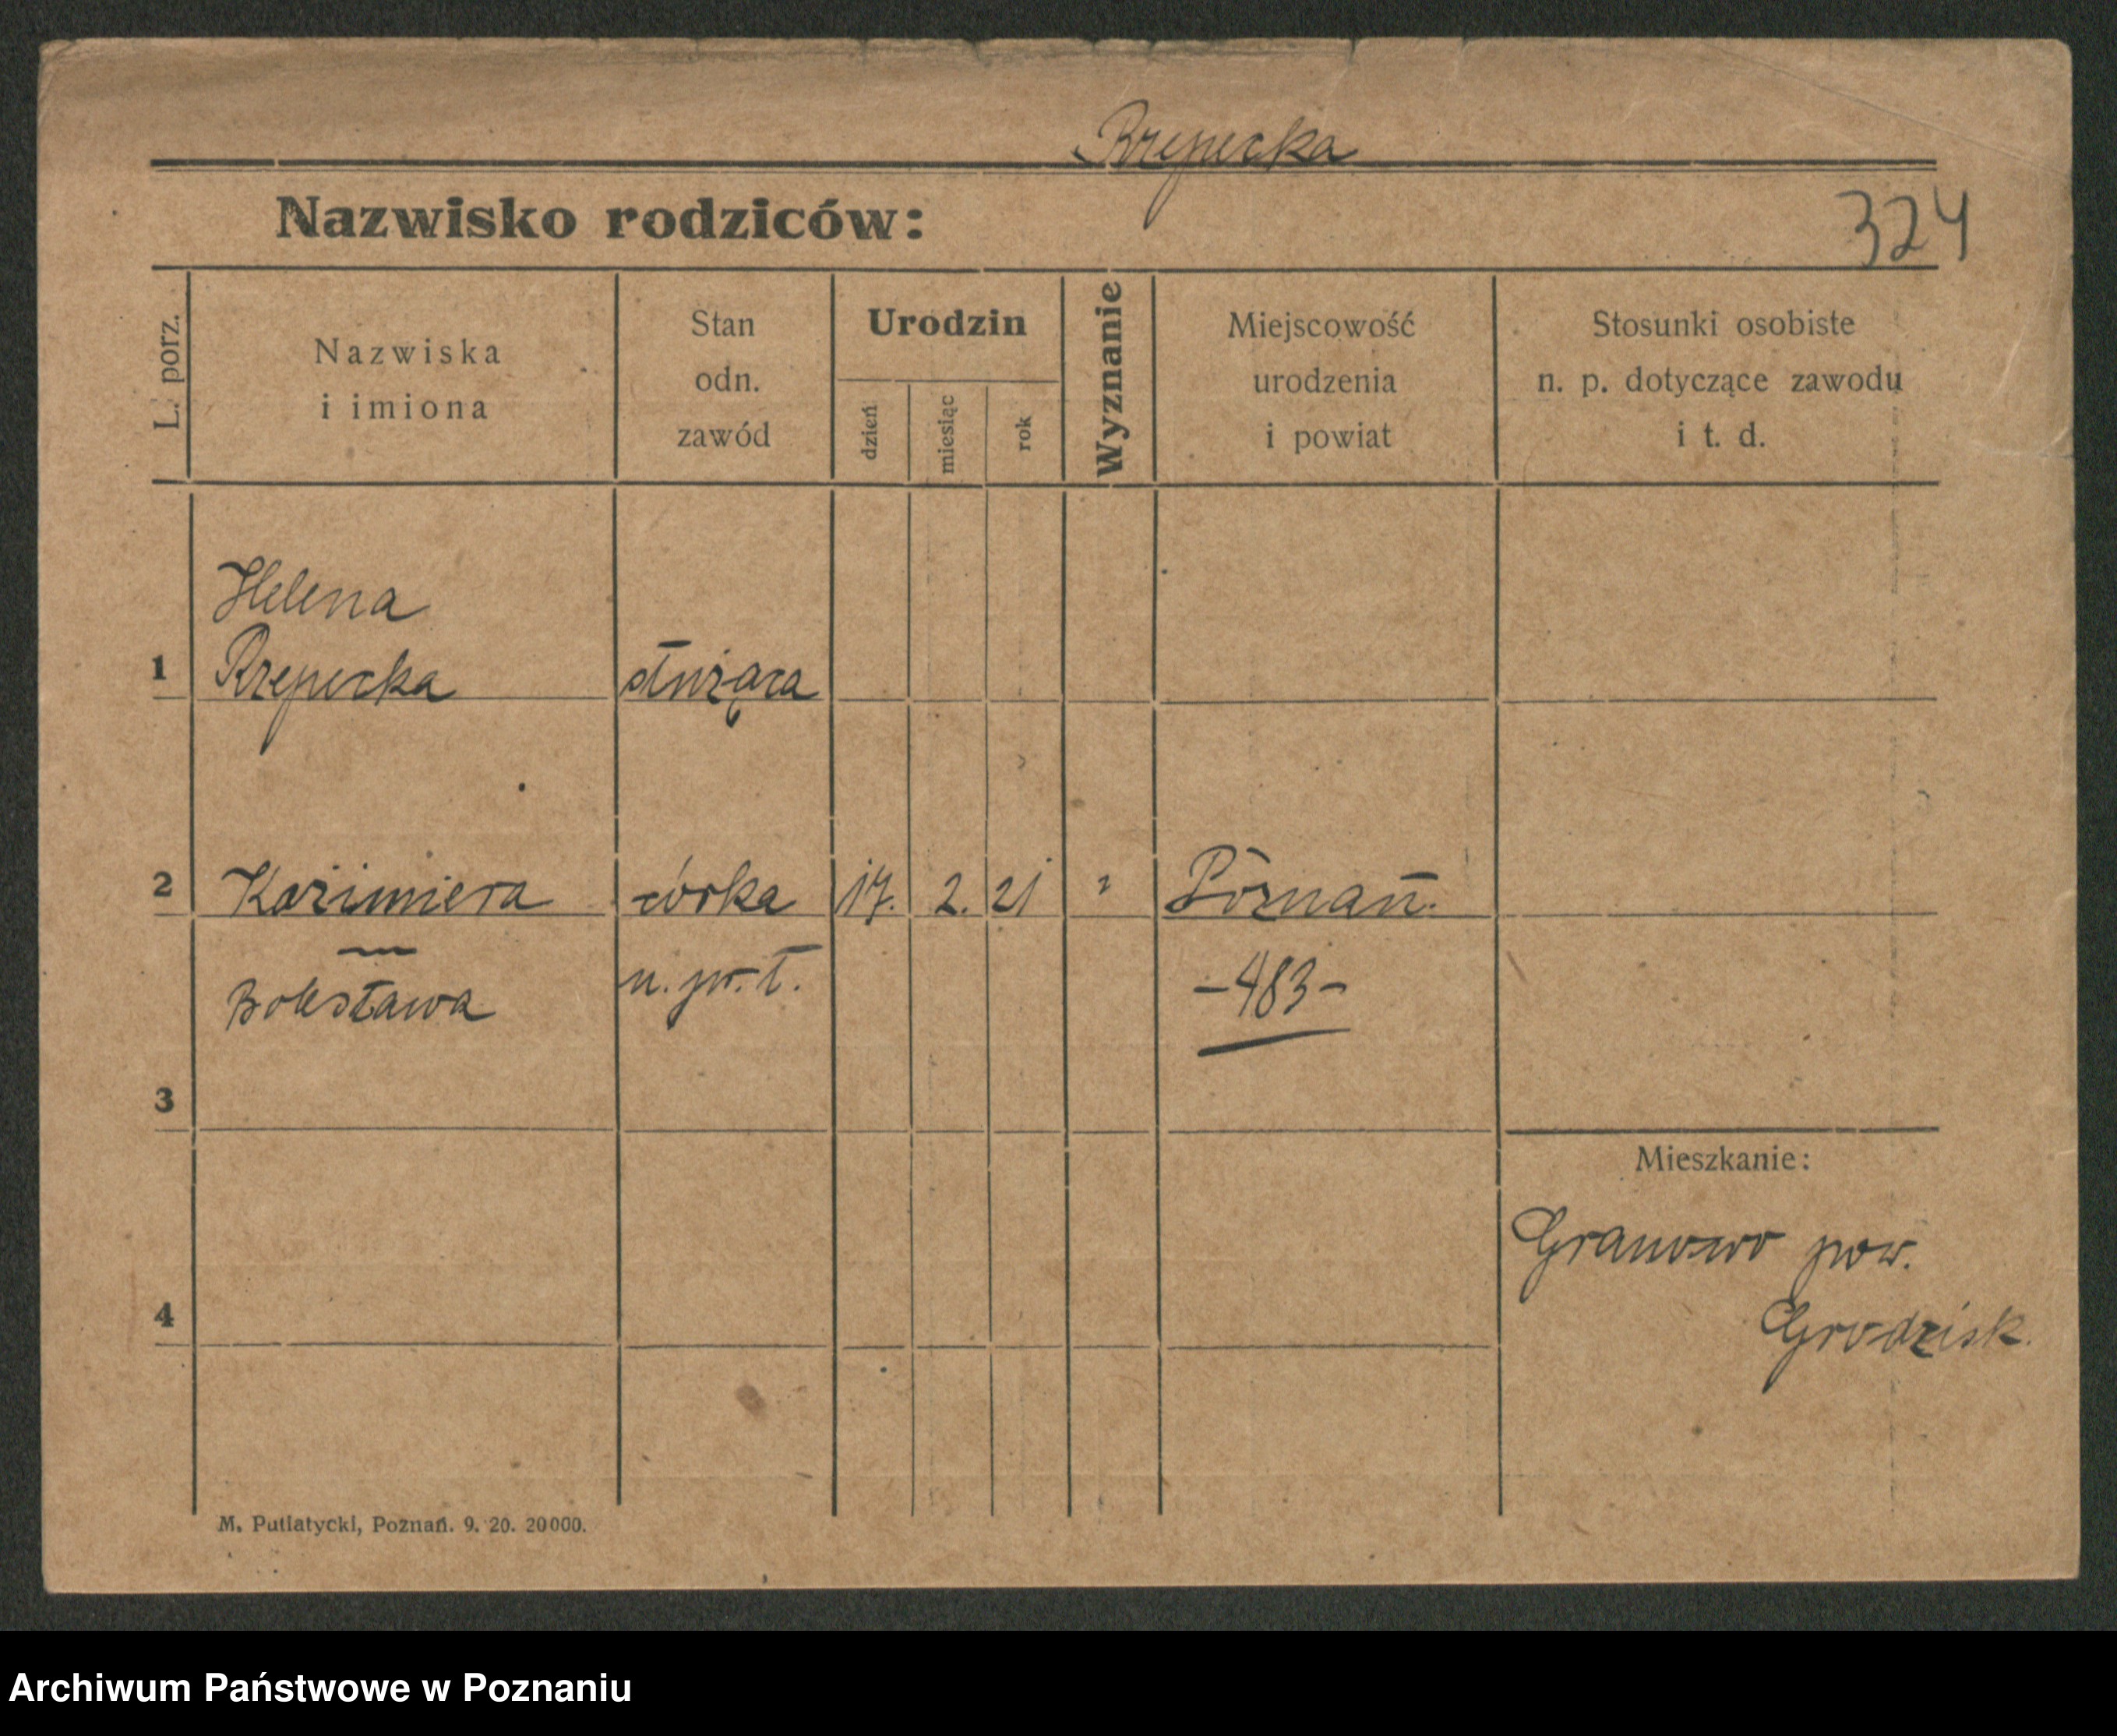 Rzepecka
Nazwisko rodziców:
324
L. porz.
Nazwiska
i imiona
Stan
odn.
zawód
Urodzin
dzień
miesiąc
rok
Wyznanie
Miejscowość
urodzenia
i powiat
Stosunki osobiste
n. p. dotyczące zawodu
i t. d.
Helena
1 Rzepecka służąca
2 Kazimiera córka 17. 2. 21 " Poznań.
Bolesława
-483-
3
Mieszkanie:
Granowo pow.
Grodzisk.
4
M. Putiatycki, Poznań. 9. 20. 20000.
Archiwum Państwowe w Poznaniu